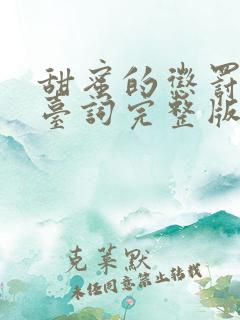 甜蜜的懲罰
臺詞完整版
克萊默
未任同意禁止转载